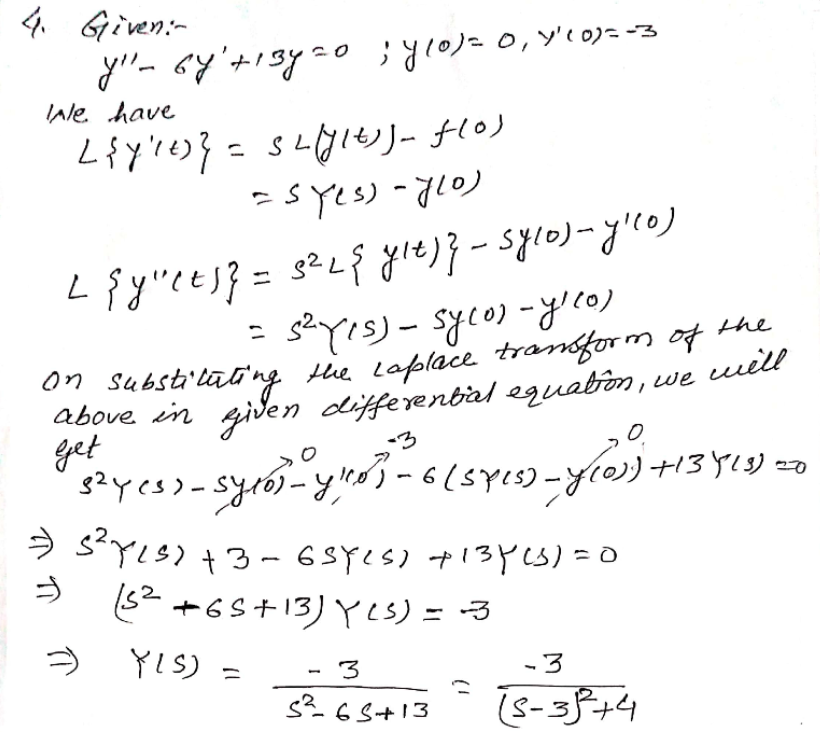 4. Given:-
y'' - 6y' + 13y = 0 ; y(0) = 0, y'(0) = -3
We have
L{y'(t)} = SL(y(t)) - f(0)
= SY(s) - y(0)
L{y''(t)} = S²L{y(t)} - Sy(0) - y'(0)
= S²Y(S) - Sy(0) - y'(0)
On substituting the Laplace transform of the
above in given differential equation, we will
get
S²Y(S) - Sy(0)→0 - y'(0)→-3 - 6(SY(S) - y(0)→0) + 13Y(S) = 0
⇒ S²Y(S) + 3 - 6SY(S) + 13Y(S) = 0
⇒ (S² + 6S + 13) Y(S) = -3
⇒ Y(S) = -3 / (S² - 6S + 13) = -3 / ((S-3)² + 4)